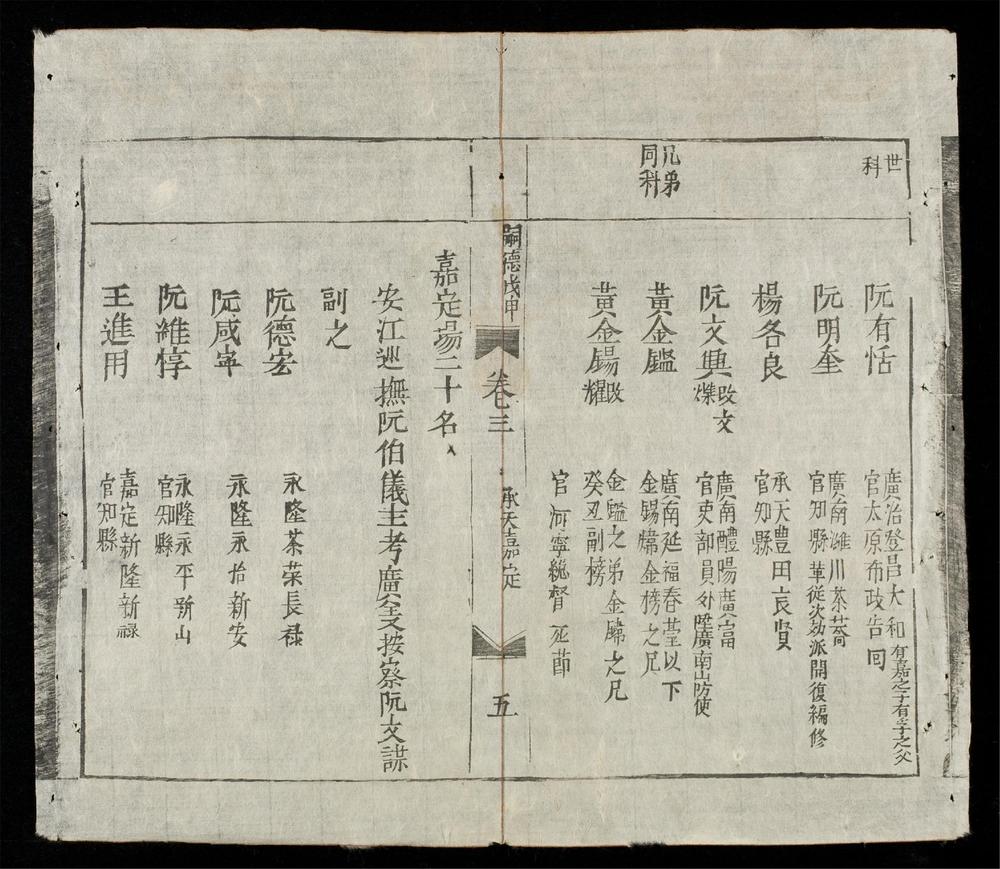 世科
阮有恬
廣治登昌大和有嘉之子有孚之父
官太原布政告回
阮明奎
廣南濰川茶蕎
官知縣革從次効派開復編修
楊各良
承天豊田哀賢
官知縣
阮文興改文爍
廣南醴陽廣富
官吏部員外陞廣南山防使
兄弟同科
黃金鑑
廣南延福春臺以下
金錫暐金榜之兄
黃金錫改耀
金鑑之弟金暐之兄
癸丑副榜
官河寧総督死節
嗣德戊申
卷三
承天嘉定
五
嘉定場二十名
安江巡撫阮伯儀主考廣義按察阮文謀
副之
阮德宏
永隆茶荣長禄
阮咸寧
永隆永治新安
阮維惇
永隆永平新山
官知縣
王進用
嘉定新隆新禄
官知縣